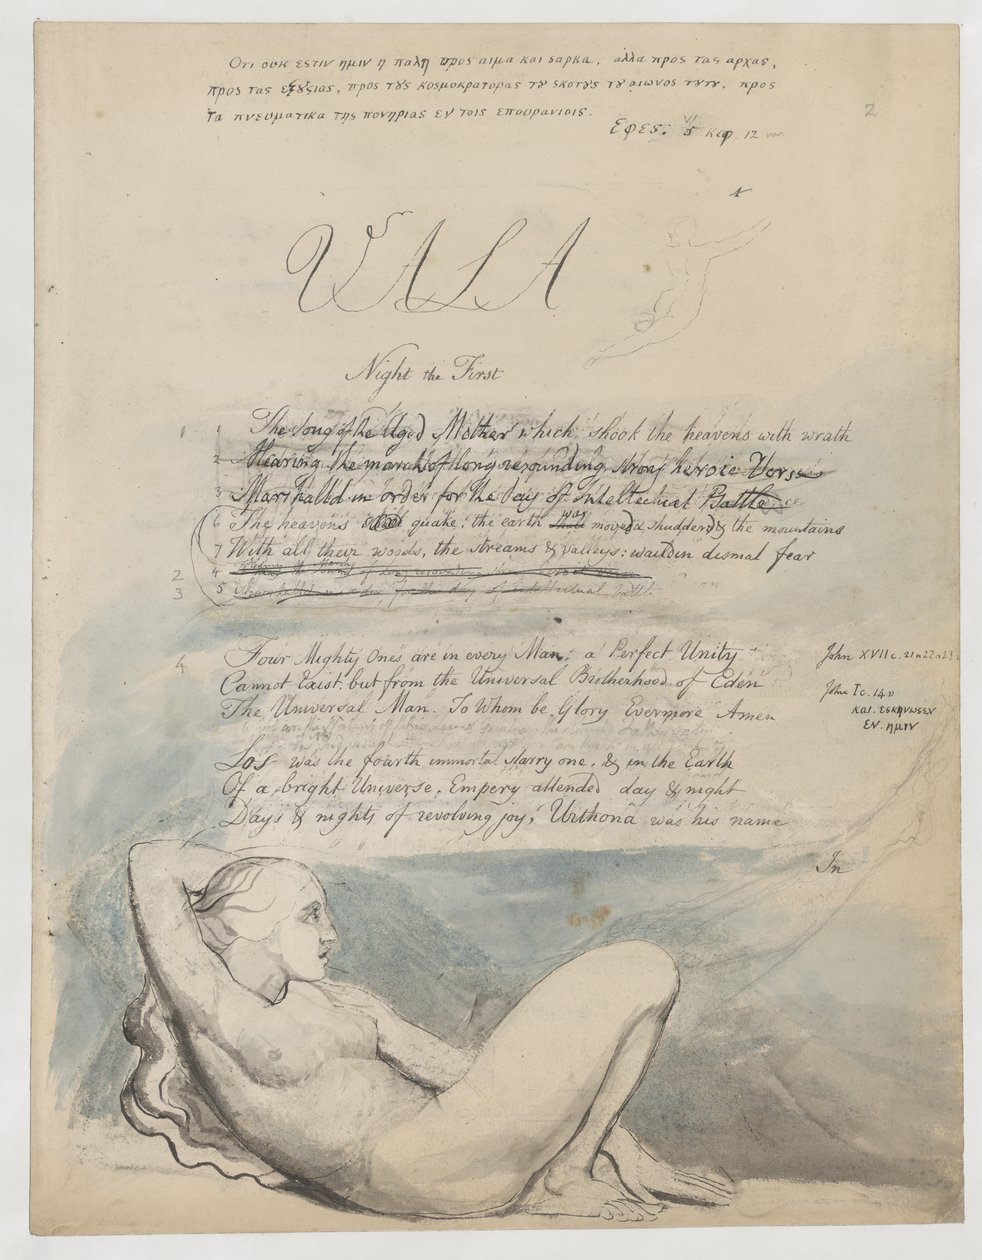 Οτι ουκ εστιν ημιν η παλη προς αιμα και σαρκα, αλλα προς τας αρχας,
προς τας εξȣσιας, προς τȣς κοσμοκρατορας τȣ σκοτȣς τȣ αιωνος τȣτȣ, προς
τα πνευματικα της πονηριας εν τοις επουρανιοις.
Εφες: VI
5 κεφ. 12
2
VALA
Night the First
1 1 The Song of the Aged Mother which shook the heavens with wrath
2 Hearing the march of long resounding strong heroic Verse
3 Marshalld in order for the day of Intellectual Battle
6 The heavens quake: the earth was moved & shudderd & the mountains
7 With all their woods, the streams & valleys: waild in dismal fear
2 4 the march of long resounding strong heroic verse
3 5 Marshalld in order for the day of Intellectual Battle
4 Four Mighty Ones are in every Man; a Perfect Unity John XVII c. 21 & 22 & 23 v
Cannot Exist. but from the Universal Brotherhood of Eden John I c. 14 v
The Universal Man. To Whom be Glory Evermore Amen και. εσκηνωσεν
εν. ημιν
Los was the fourth immortal starry one, & in the Earth
Of a bright Universe, Empery attended day & night
Days & nights of revolving joy, Urthona was his name
In